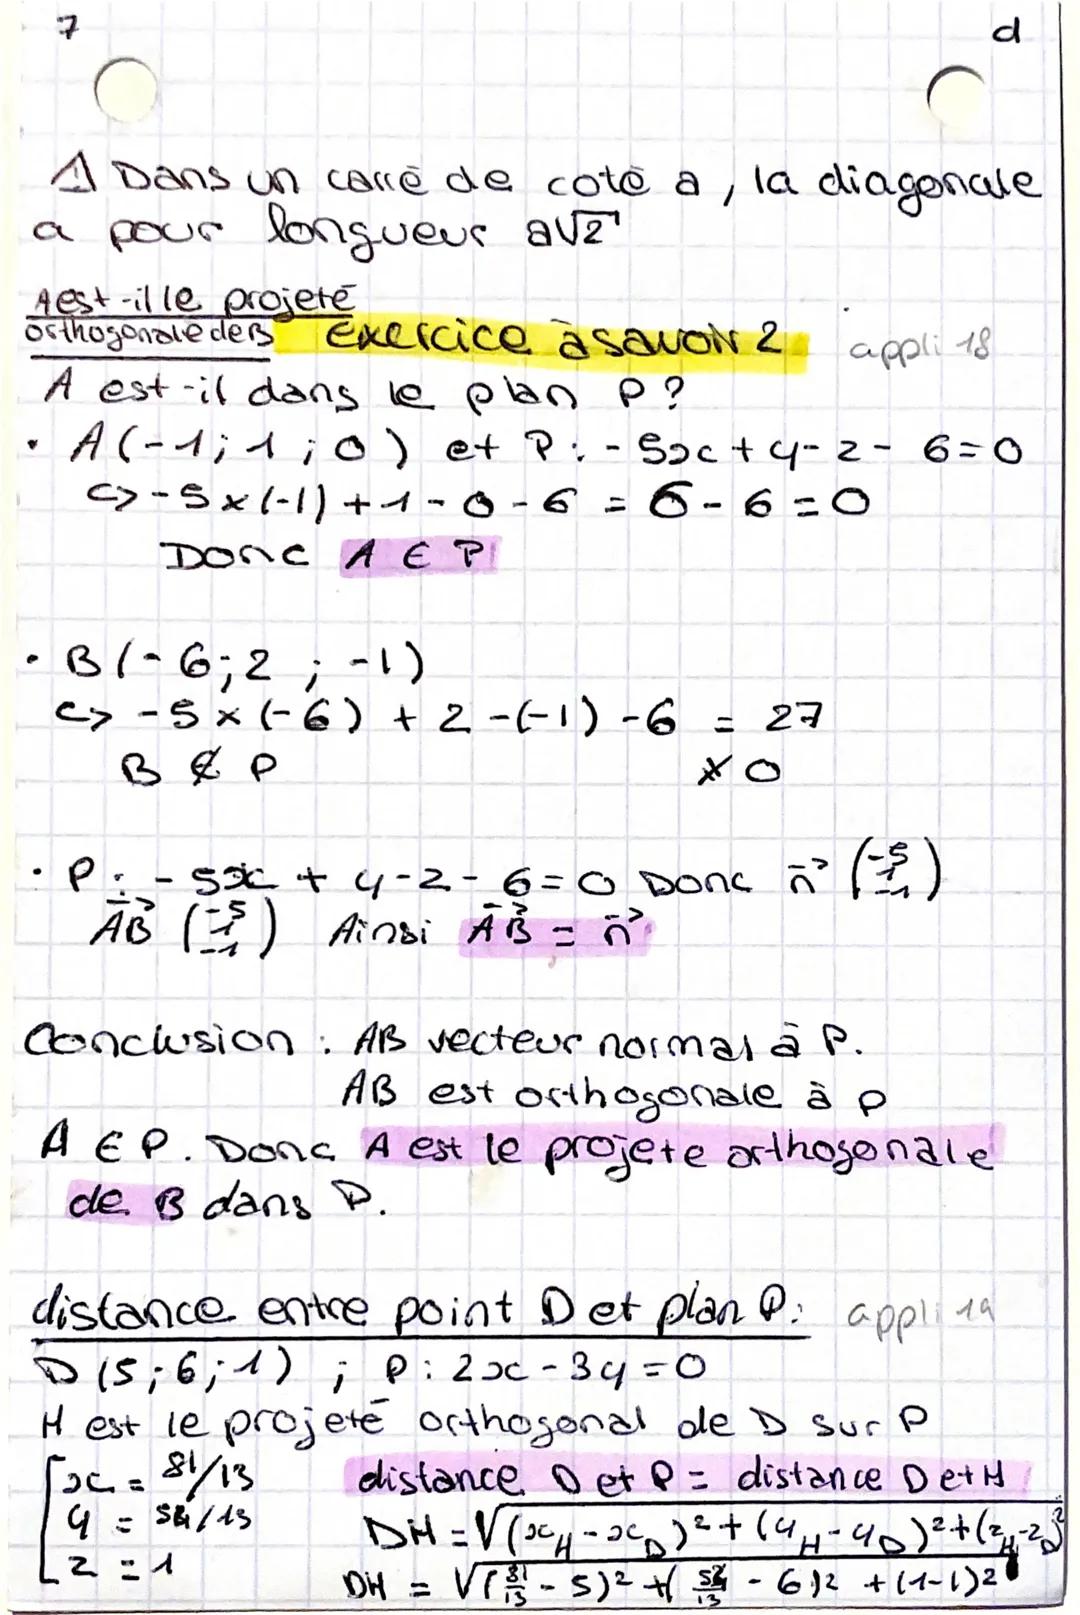 7 d
1 Dans un carré de coté a, la diagonale
a pour longueur a√2
A est-il le projeté
orthogonale de B exercice à savoir 2 appli 18
A est-il dans le plan P?
• A(-1; 1; 0) et P: -5x+y-z-6=0
<=> -5×(-1)+1-0-6 = 6-6=0
Donc A ∈ P
• B(-6; 2; -1)
<=> -5×(-6) + 2 -(-1) -6 = 27
B ∉ P ≠ 0
• P: -5x + y-z-6=0 Donc n⃗ (-5 1 -1)
AB⃗ (-5 1 -1) Ainsi AB⃗ = n⃗
Conclusion : AB vecteur normal à P.
AB est orthogonale à P
A ∈ P. Donc A est le projete orthogonale
de B dans P.
distance entre point D et plan P: appli 19
D (5; 6; 1) ; P: 2x-3y=0
H est le projeté orthogonal de D sur P
x = 81/13 distance D et P = distance D et H
y = 54/13 DH = √(x_H - x_D)² + (y_H - y_D)² + (z_H - z_D)²
z = 1 DH = √(81/13 - 5)² + (54/13 - 6)² + (1-1)²